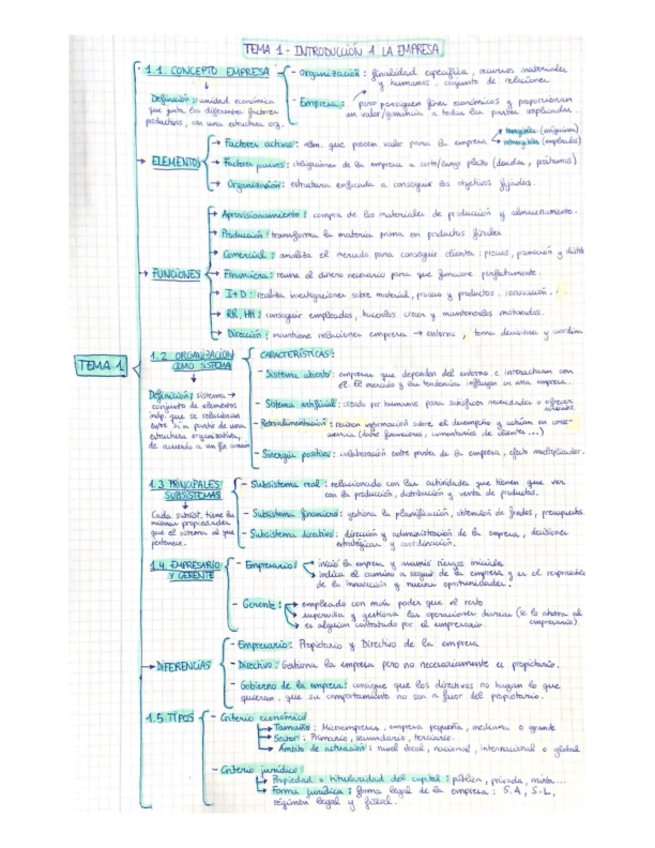 TEMA 1 - INTRODUCCIÓN A LA EMPRESA
TEMA 1
1.1. CONCEPTO EMPRESA
Definición: unidad económica
que junta los diferentes factores
productivos, con una estructura org.
- Organización: finalidad específica, recursos materiales
y humanos, conjunto de relaciones
- Empresa: pero persiguen fines económicos y proporcionan
un valor/ganancia a todas las partes implicadas.
ELEMENTOS
Factores activos: elem. que poseen valor para la empresa
tangible (máquinas)
intangibles (empleados)
Factores pasivos: obligaciones de la empresa a corto/largo plazo (deudas, préstamos)
Organización: estructura enfocada a conseguir los objetivos fijados.
FUNCIONES
Aprovisionamiento: compra de los materiales de producción y almacenamiento.
Producción: transforma la materia prima en productos finales
Comercial: analiza el mercado para conseguir clientes: precios, promoción y distri
Financiera: reune el dinero necesario para que funcione perfectamente.
I+D: realiza investigaciones sobre material, proceso y productos. innovación.
RR.HH: conseguir empleados, hacerlos crecer y mantenerlos motivados.
Dirección: mantiene relaciones empresa → entorno, toma decisiones y coordina
1.2. ORGANIZACIÓN
COMO SISTEMA
Definición: sistema →
conjunto de elementos
indp. que se relacionan
entre sí a partir de una
estructura organizativa,
de acuerdo a un fin común
CARACTERÍSTICAS:
- Sistema abierto: empresas que dependen del entorno e interactuan con
él. El mercado y las tendencias influyen en una empresa.
- Sistema artificial: creado por humanos para satisfacer necesidades o ofrecer
- Retroalimentación: reciben información sobre el desempeño y actúan en conse-
uencia (datos financieros, comentarios de clientes...)
- Sinergia positiva: colaboración entre partes de la empresa, efecto multiplicador.
1.3 PRINCIPALES
SUBSISTEMAS
Cada subsist. tiene las
mismas propiedades
que el sistema al que
pertenece.
- Subsistema real: relacionado con las actividades que tienen que ver
con la producción, distribución y venta de productos.
- Subsistema financiero: gestiona la planificación, obtención de fondos, presupuestos.
- Subsistema directivo: dirección y administración de la empresa, decisiones
estratégicas y coordinación.
1.4. EMPRESARIO
Y GERENTE
- Empresario:
inició la empresa y asumió riesgos iniciales
indica el camino a seguir de la empresa y es el responsable
de la innovación y nuevas oportunidades.
- Gerente:
empleado con más poder que el resto
supervisa y gestiona las operaciones diarias (se lo ahorra al
empresario)
es alguien contratado por el empresario.
DIFERENCIAS
- Empresario: Propietario y Directivo de la empresa
- Directivo: Gestiona la empresa pero no necesariamente es propietario.
- Gobierno de la empresa: consigue que los directivos no hagan lo que
quieran, que su comportamiento no sea a favor del propietario.
1.5 TIPOS
- Criterio económico
Tamaño: Microempresas, empresa pequeña, mediana o grande
Sector: Primario, secundario, terciario.
Ámbito de actuación: nivel local, nacional, internacional o global
- Criterio jurídico:
Propiedad o titularidad del capital: pública, privada, mixta...
Forma jurídica: forma legal de la empresa: S.A, S.L,
régimen legal y fiscal.